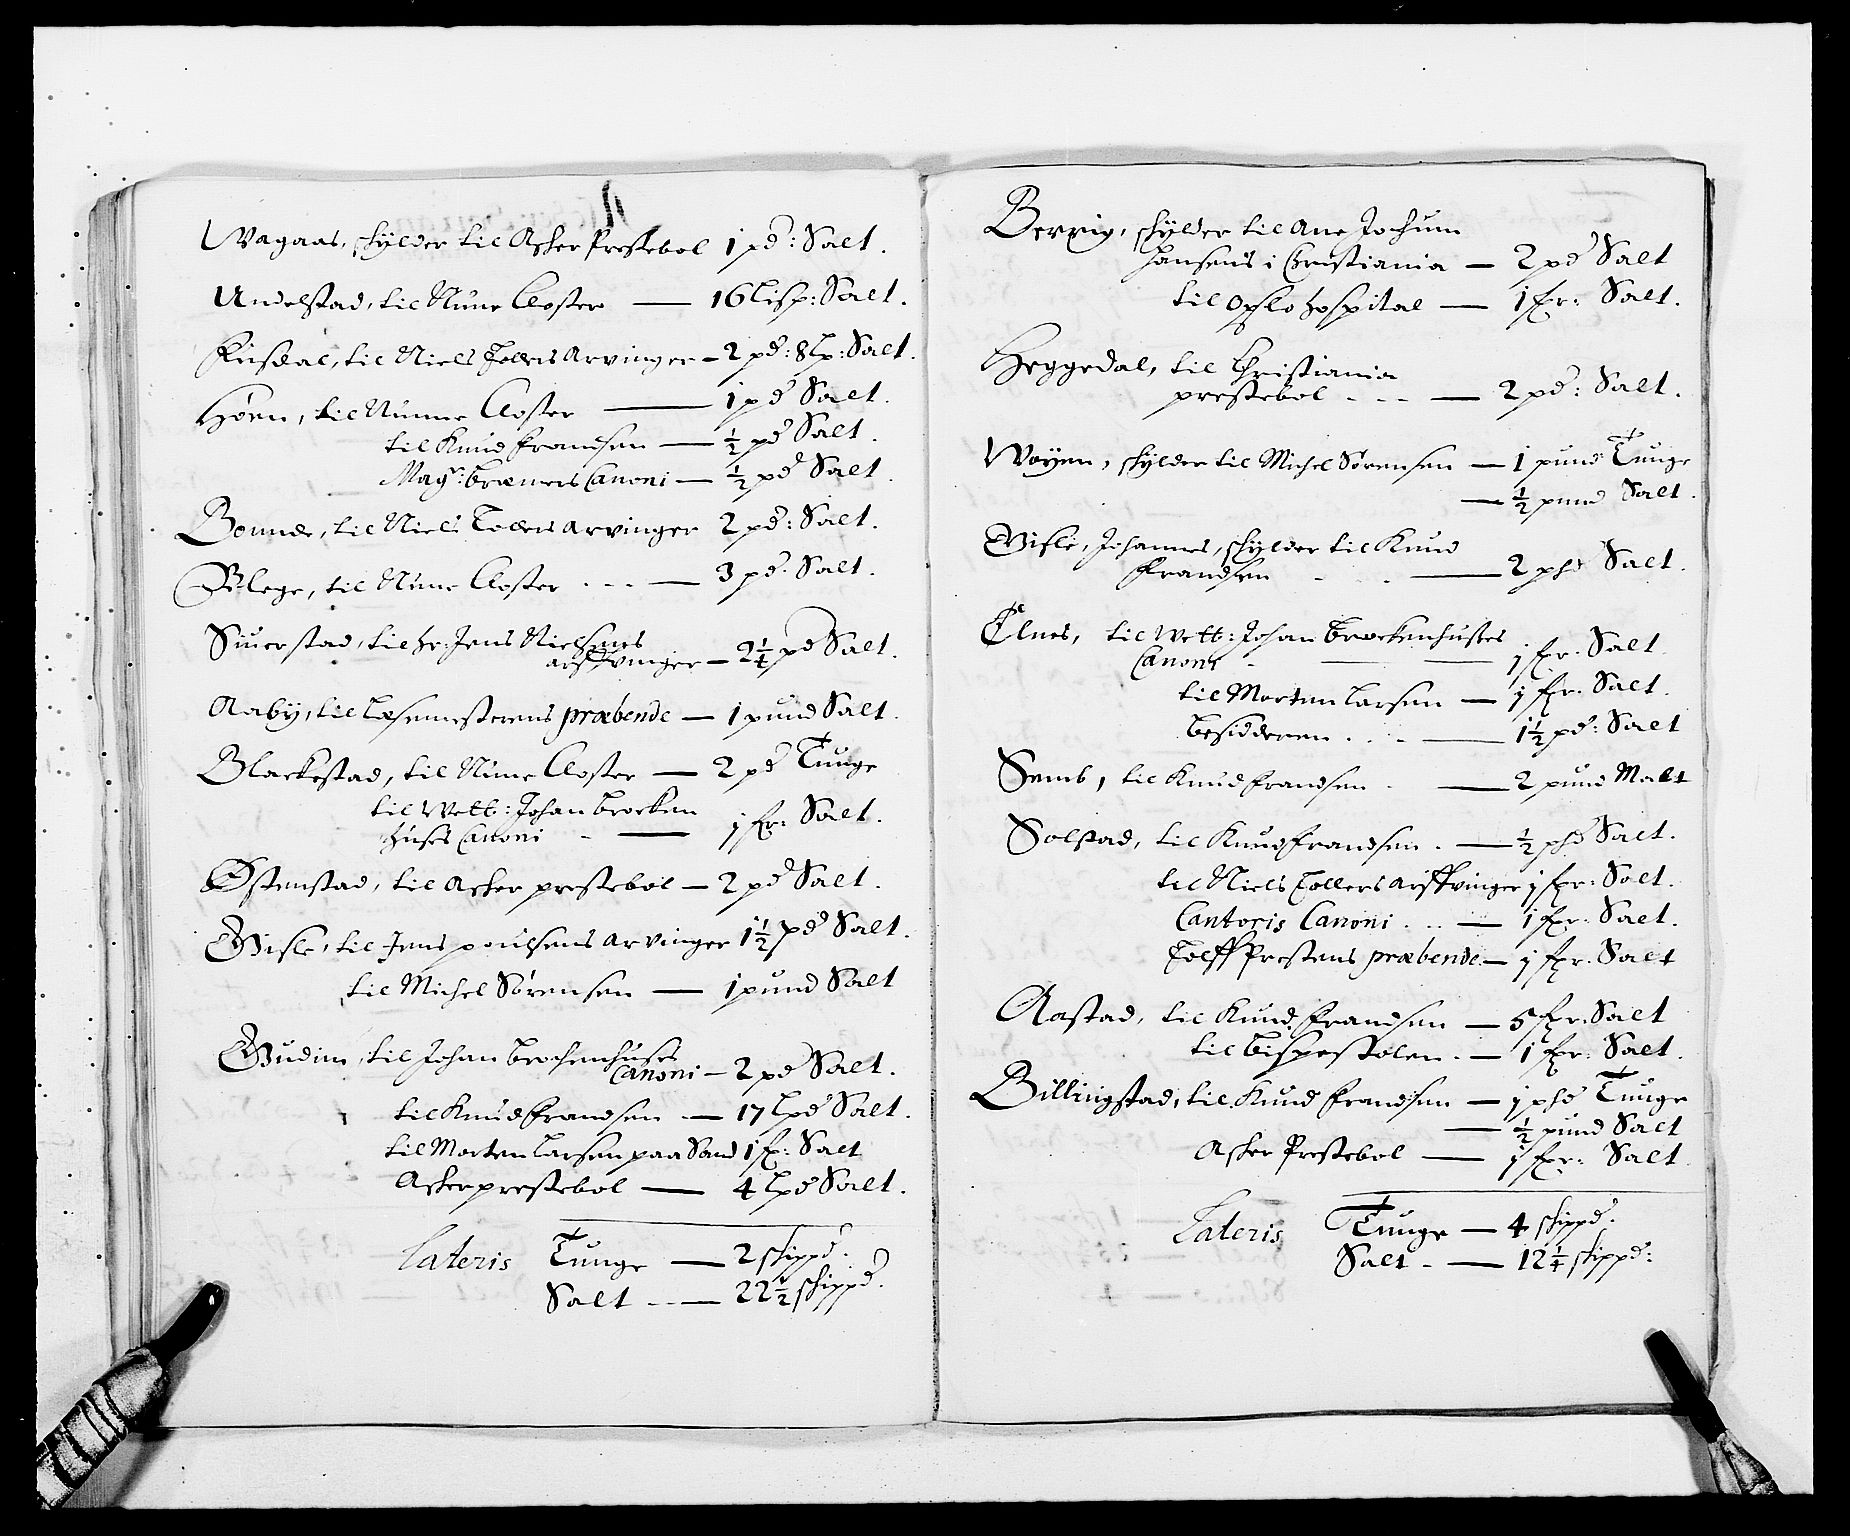 Wagaas, skylder til Asker Prestebol 1 pd: Salt.
Undelstad, til Nunne Closter — 16 lisp: Salt.
til Niels Tollers Arvinger – 2 pd: 8 lp: Salt.
Høen, til Nunne Closter — 1 pd Salt.
til Knud Frandsen — ½ pd Salt.
Magr: Canoni — ½ pd Salt.
til Niels Tollers Arvinger 2 pd: Salt.
til Nunne Closter . - - — 3 pd. Salt.
Siuerstad, til hr: Jens Nielsens
arffvinger – 2¼ pd Salt.
Aaby, til Læsemesterens præbende — 1 pund Salt.
Blackestad, til Nunne Closter — 2 pd Tunge
til Welb: Johan Brocken
huses Canoni - — j fr: Salt.
Østenstad, til Asker prestebol — 2 pd Salt.
Gisle, til Jens poulsens arvinger 1½ pd Salt.
til Michel Sørensen — 1 pund Salt
Gudim, til Johan Brochenhuses
Canoni — 2 pd Salt.
til Knud Frandsen — 17 lpd Salt.
til Morten Larsen paa Sand 1 f: Salt
Asker prestebol — 4 lpd Salt.
Lateris Tunge — 2 skippd.
Salt - - — 22½ skippd.
Berrig, skylder til Ane Jochum
Hansens i Christiania — 2 pd Salt
til Opslo Hospital — 1 fr: Salt.
Heggedal, til Christiania
prestebol . - - — 2 pd: Salt.
Woyen, skylder til Michel Sørensen — 1 pund Tunge
— ½ pund Salt.
Gisle, Johannes, skylder til Knud
Frandsen - . — 2 phd Salt.
Elnes, til Welb: Johan Brockenhuses
Canoni - — — j fr. Salt
til Morten Larsen — j fr. Salt.
besidderen . . - — 1½ pd: Salt
Semb, til Knud Frandsen - — 2 pund Malt
Solstad, til Knud Frandsen . — ½ phd Salt.
til Niels Tollers Arffvinger j fr: Salt.
Cantoris Canoni . . — 1 fr: Salt.
Tolff Prestens præbende — j fr. Salt
Aastad, til Knud Frandsen — 5 fr: Salt
til bispestolen . — 1 fr. Salt.
Billingstad, til Knud Frandsen — j phd Tunge
— ½ pund Salt
Asker Prestebol — j fr: Salt.
Lateris Tunge — 4 skippd.
Salt - — 12¼ skippd: